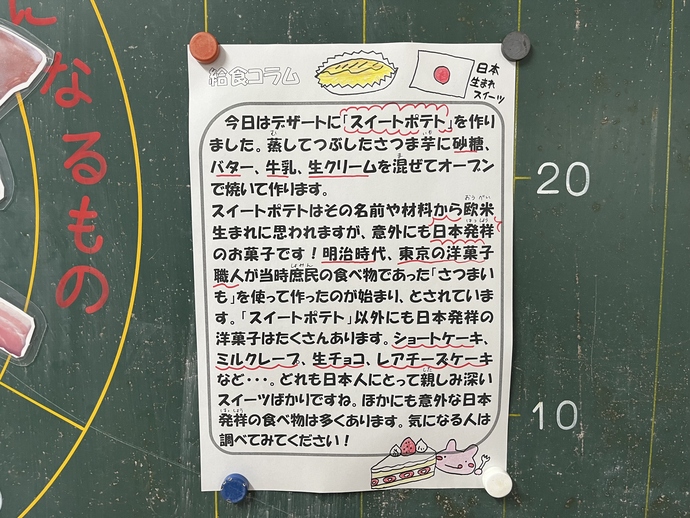 んなるもの
給食コラム
日本
生まれ
スイーツ
今日はデザートに「スイートポテト」を作り
ました。蒸してつぶしたさつま芋に砂糖、
バター、牛乳、生クリームを混ぜてオーブン
で焼いて作ります。
スイートポテトはその名前や材料から欧米
生まれに思われますが、意外にも日本発祥
のお菓子です！明治時代、東京の洋菓子
職人が当時庶民の食べ物であった「さつまい
も」を使って作ったのが始まり、とされていま
す。「スイートポテト」以外にも日本発祥の
洋菓子はたくさんあります。ショートケーキ、
ミルクレープ、生チョコ、レアチーズケーキ
など・・・。どれも日本人にとって親しみ深い
スイーツばかりですね。ほかにも意外な日本
発祥の食べ物は多くあります。気になる人は
調べてみてください！
20
10